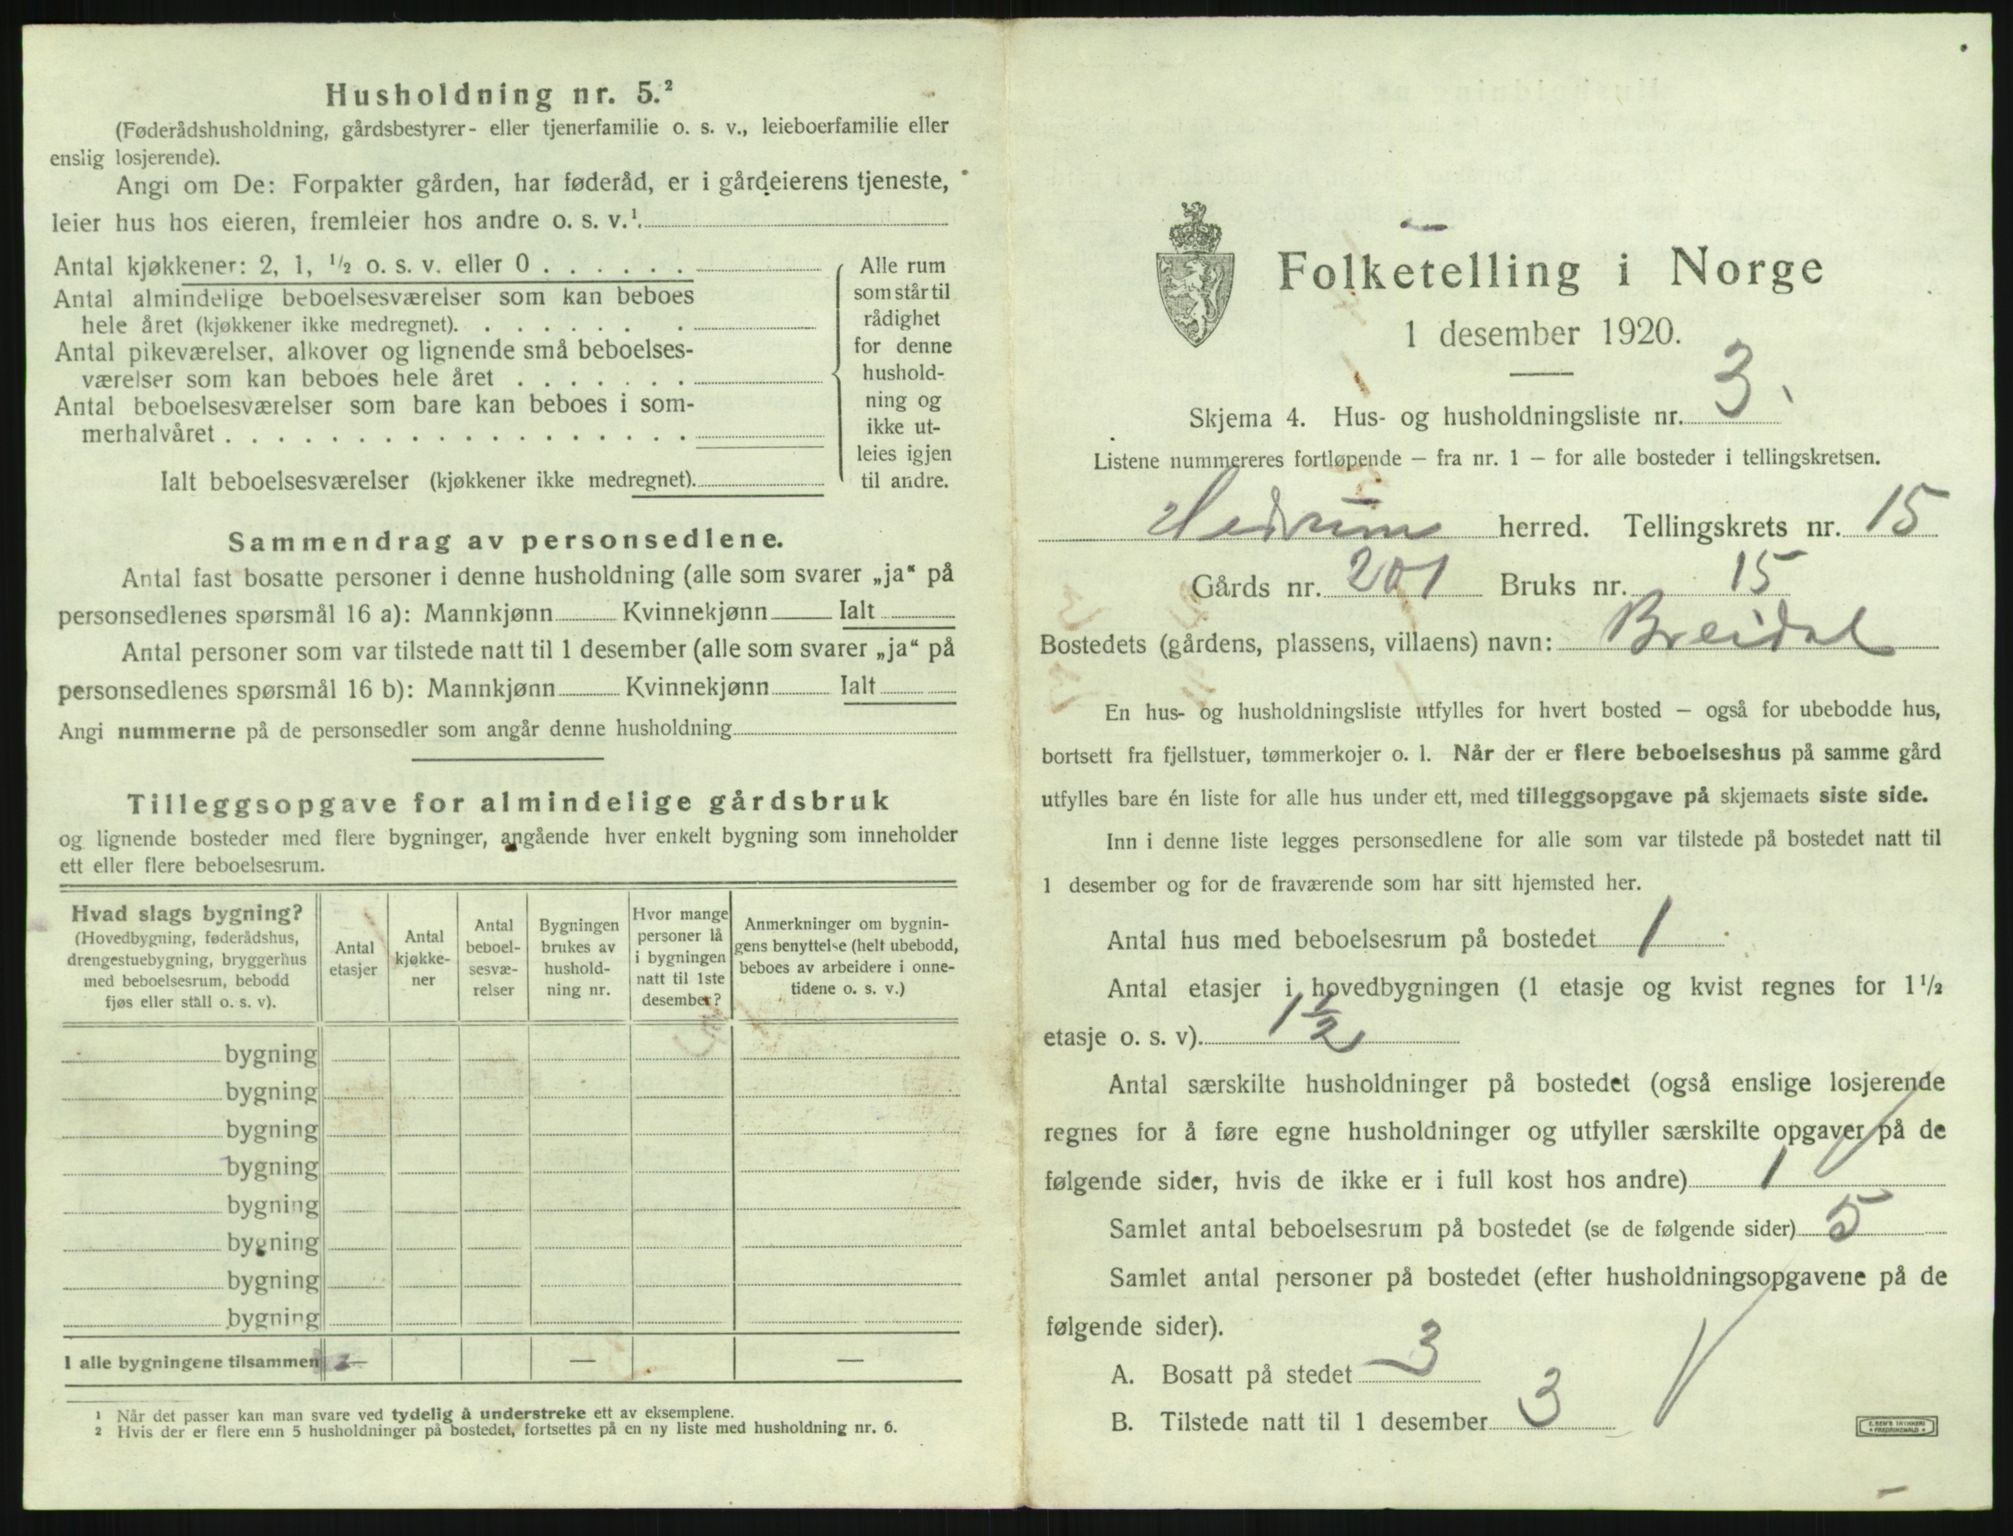 Husholdning nr. 5.²
(Føderådshusholdning, gårdsbestyrer- eller tjenerfamilie o. s. v., leieboerfamilie eller
enslig losjerende).
Angi om De: Forpakter gården, har føderåd, er i gårdeierens tjeneste,
leier hus hos eieren, fremleier hos andre o. s. v.¹
Antal kjøkkener: 2, 1, ½ o. s. v. eller 0 . . . . . .
Antal almindelige beboelsesværelser som kan beboes
hele året (kjøkkener ikke medregnet). . . . . . . .
Antal pikeværelser, alkover og lignende små beboelses-
værelser som kan beboes hele året . . . . . . .
Antal beboelsesværelser som bare kan beboes i som-
merhalvåret . . . . . . . . . . . . . . . . . .
Ialt beboelsesværelser (kjøkkener ikke medregnet).
Alle rum
som står til
rådighet
for denne
hushold-
ning og
ikke ut-
leies igjen
til andre.
Sammendrag av personsedlene.
Antal fast bosatte personer i denne husholdning (alle som svarer „ja“ på
personsedlenes spørsmål 16 a): Mannkjønn Kvinnekjønn Ialt
Antal personer som var tilstede natt til 1 desember (alle som svarer „ja“ på
personsedlenes spørsmål 16 b): Mannkjønn Kvinnekjønn Ialt
Angi nummerne på de personsedler som angår denne husholdning
Tilleggsopgave for almindelige gårdsbruk
og lignende bosteder med flere bygninger, angående hver enkelt bygning som inneholder
ett eller flere beboelsesrum.
Hvad slags bygning?
(Hovedbygning, føderådshus,
drengestuebygning, bryggerhus
med beboelsesrum, bebodd
fjøs eller ställ o. s. v).
Antal
etasjer
Antal
kjøkke-
ner
Antal
beboel-
sesvæ-
relser
Bygningen
brukes av
hushold-
ning nr.
Hvor mange
personer lå
i bygningen
natt til 1ste
desember?
Anmerkninger om bygnin-
gens benyttelse (helt ubebodd,
beboes av arbeidere i onne-
tidene o. s. v.)
bygning
bygning
bygning
bygning
bygning
bygning
bygning
bygning
I alle bygningene tilsammen — — —
¹ Når det passer kan man svare ved tydelig å understreke ett av eksemplene.
² Hvis der er flere enn 5 husholdninger på bostedet, fortsettes på en ny liste med husholdning nr. 6.
Folketelling i Norge
1 desember 1920.
Skjema 4. Hus- og husholdningsliste nr. 3.
Listene nummereres fortløpende — fra nr. 1 — for alle bosteder i tellingskretsen.
Hedrum herred. Tellingskrets nr. 15
Gårds nr. 201 Bruks nr. 15
Bostedets (gårdens, plassens, villaens) navn: Breidal
En hus- og husholdningsliste utfylles for hvert bosted — også for ubebodde hus,
bortsett fra fjellstuer, tømmerkojer o. l. Når der er flere beboelseshus på samme gård
utfylles bare én liste for alle hus under ett, med tilleggsopgave på skjemaets siste side.
Inn i denne liste legges personsedlene for alle som var tilstede på bostedet natt til
1 desember og for de fraværende som har sitt hjemsted her.
Antal hus med beboelsesrum på bostedet 1
Antal etasjer i hovedbygningen (1 etasje og kvist regnes for 1½
etasje o. s. v). 1½
Antal særskilte husholdninger på bostedet (også enslige losjerende
regnes for å føre egne husholdninger og utfyller særskilte opgaver på de
følgende sider, hvis de ikke er i full kost hos andre) 1
Samlet antal beboelsesrum på bostedet (se de følgende sider) 5
Samlet antal personer på bostedet (efter husholdningsopgavene på de
følgende sider).
A. Bosatt på stedet 3
B. Tilstede natt til 1 desember 3